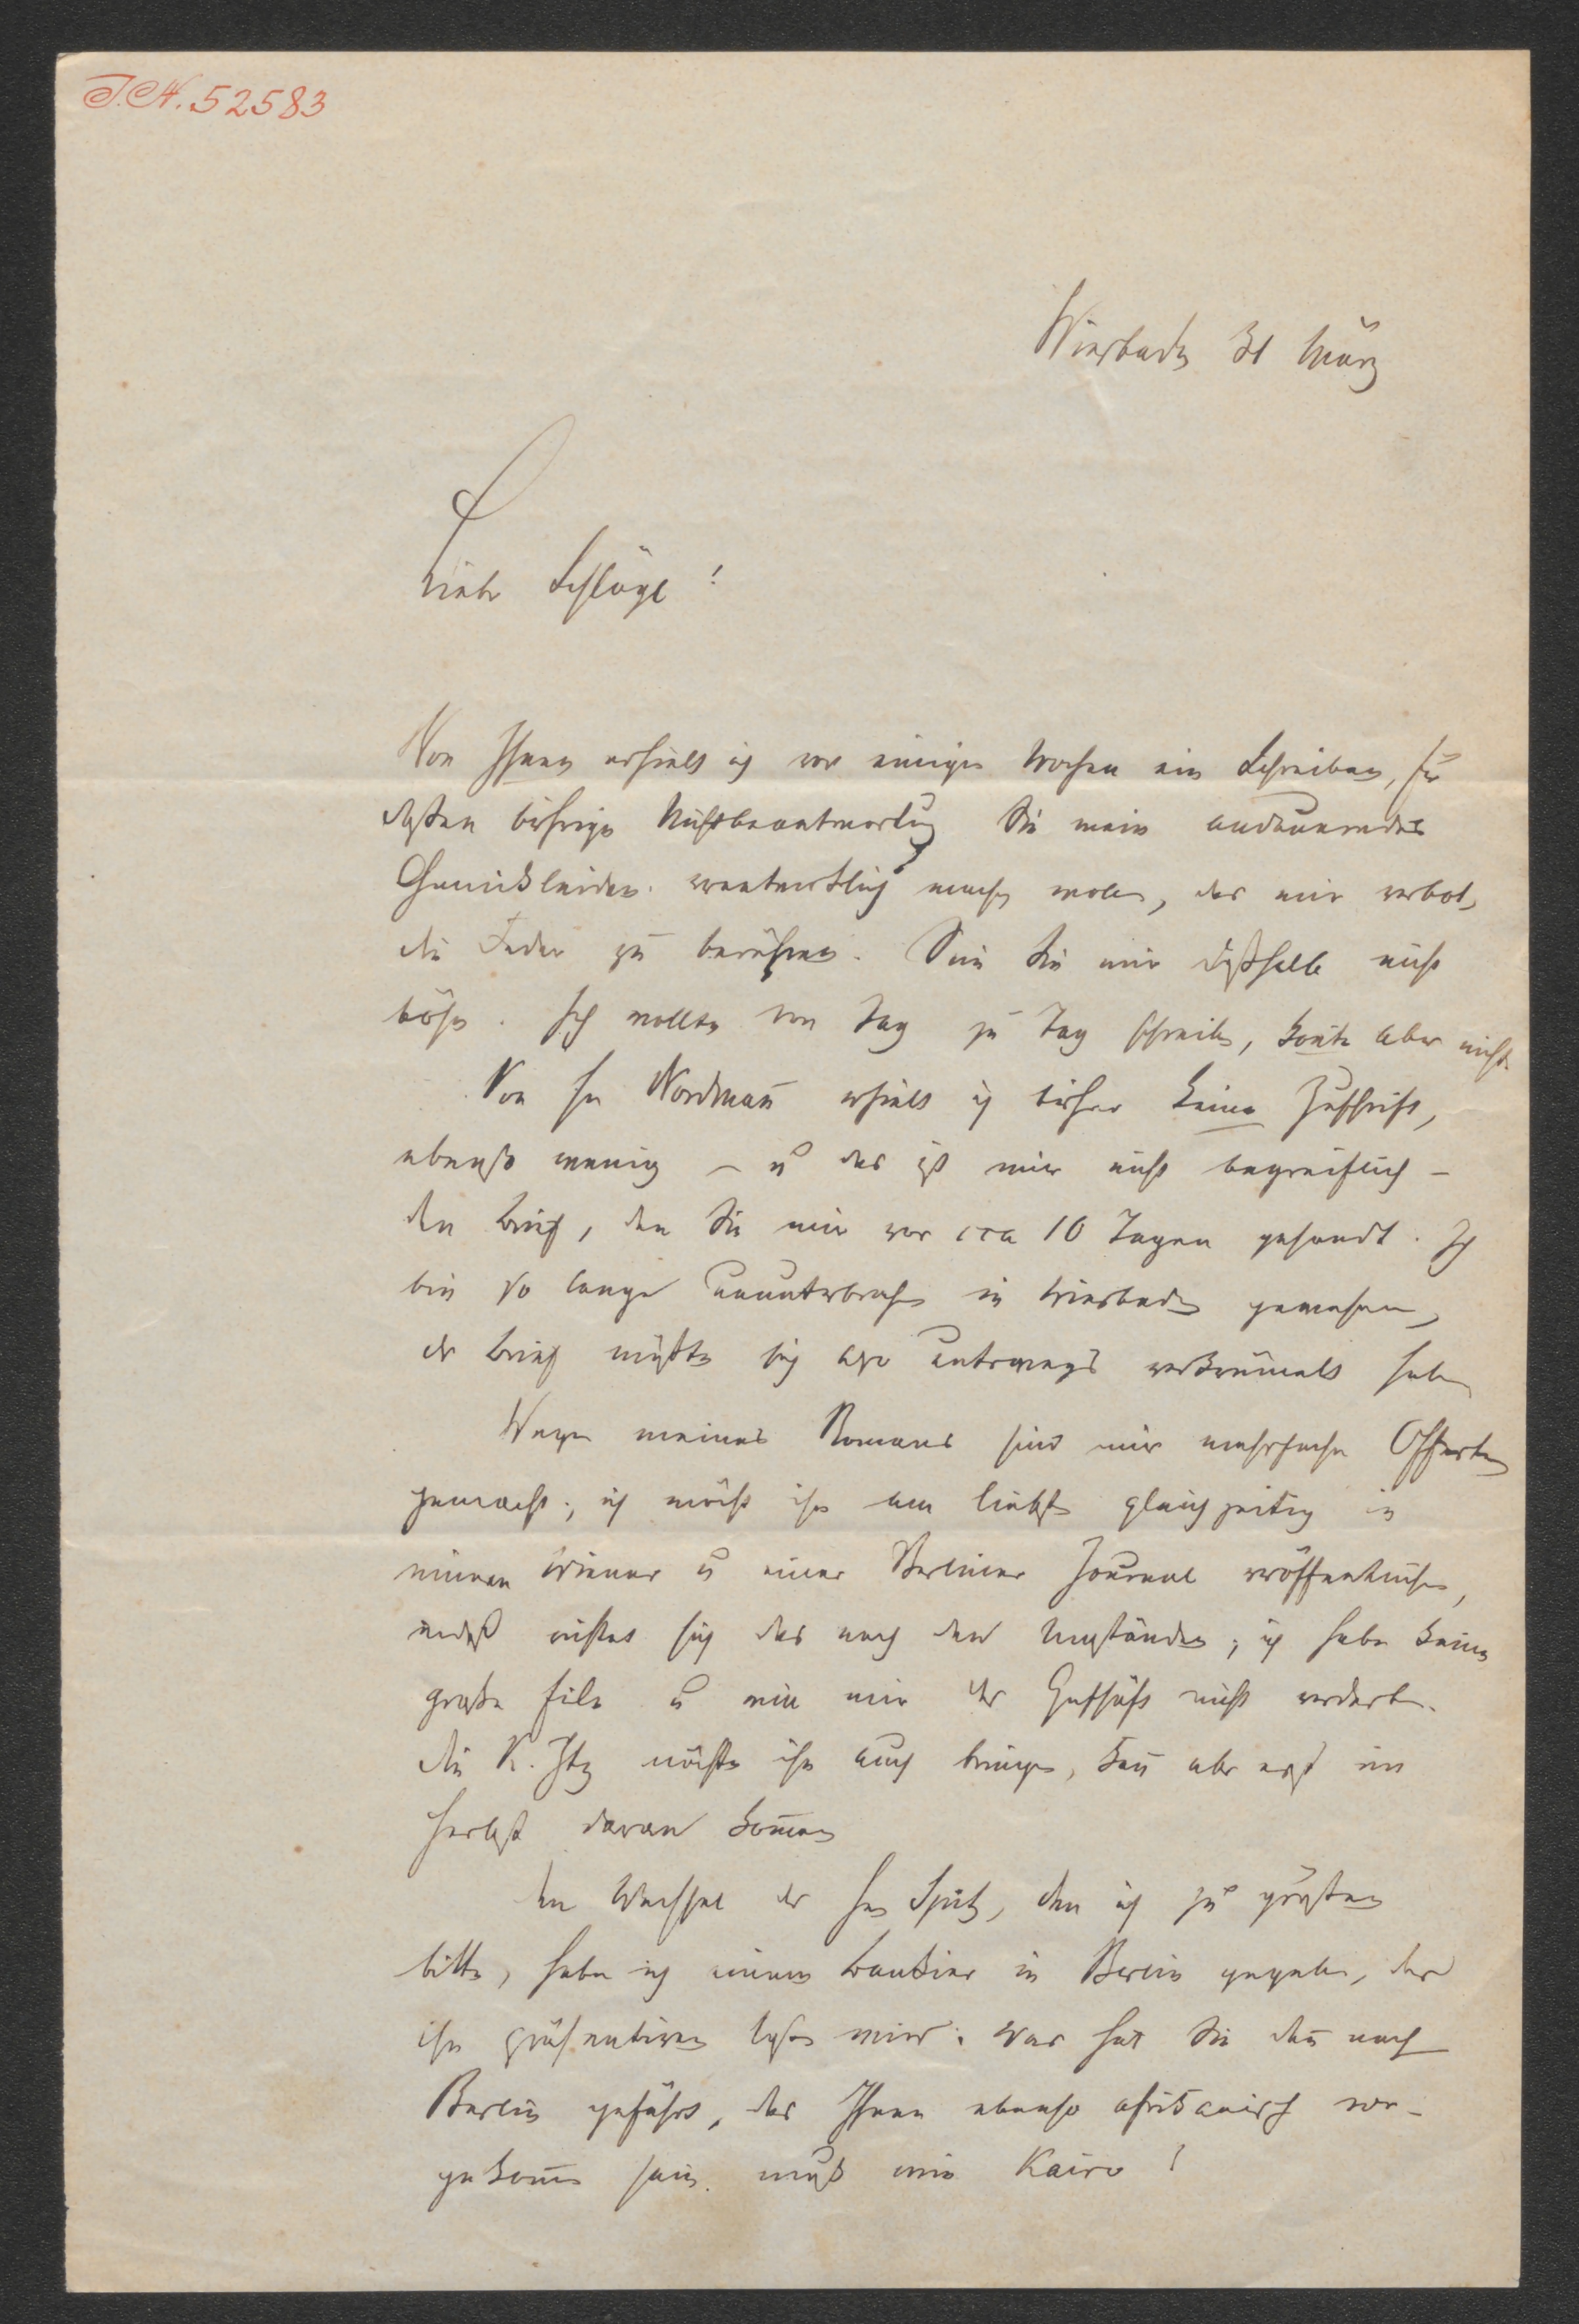 J.N. 52583
Wiesbaden 31 März
Lieber Schlögl!
Von Ihnen erhielt ich vor einigen Wochen ein Schreiben, für
dessen bisherige Nichtbeantwortung Sie mein andauerndes
Genickleiden verantwortlich machen wollen, das mir verbot,
die Feder zu berühren. Sein Sie mir deßhalb nicht
böse. Ich wollte von Tag zu Tag schreiben, konnte aber nicht.
Von Hrn Nordmann erhielt ich bisher keine Zuschrift,
ebenso wenig – u das ist mir nicht begreiflich –
den Brief, den Sie mir vor cca 10 Tagen gesandt. Ich
bin so lange ununterbrochen in Wiesbaden gewesen,
der Brief müßte sich also unterwegs verkrümelt haben
Wegen meines Romans sind mir mehrfache Offerten
gemacht; ich möchte ihn am liebsten gleichzeitig in
einem Wiener u einem Berliner Journal veröffentlichen,
indeß richtet sich das nach den Umständen; ich habe keine
große Eile u will mir das Geschäft nicht verderben.
Die K. Ztg möchte ihn auch bringen, kann aber erst im
Herbst daran kommen
Den Wechsel des Hrn Spitz, den ich zu grüßen
bitte, habe ich einem Bankier in Berlin gegeben, der
ihn präsentiren lassen wird. Was hat Sie denn nach
Berlin geführt, das Ihnen ebenso afrikanisch vor-
gekommen sein muß wie Kairo!